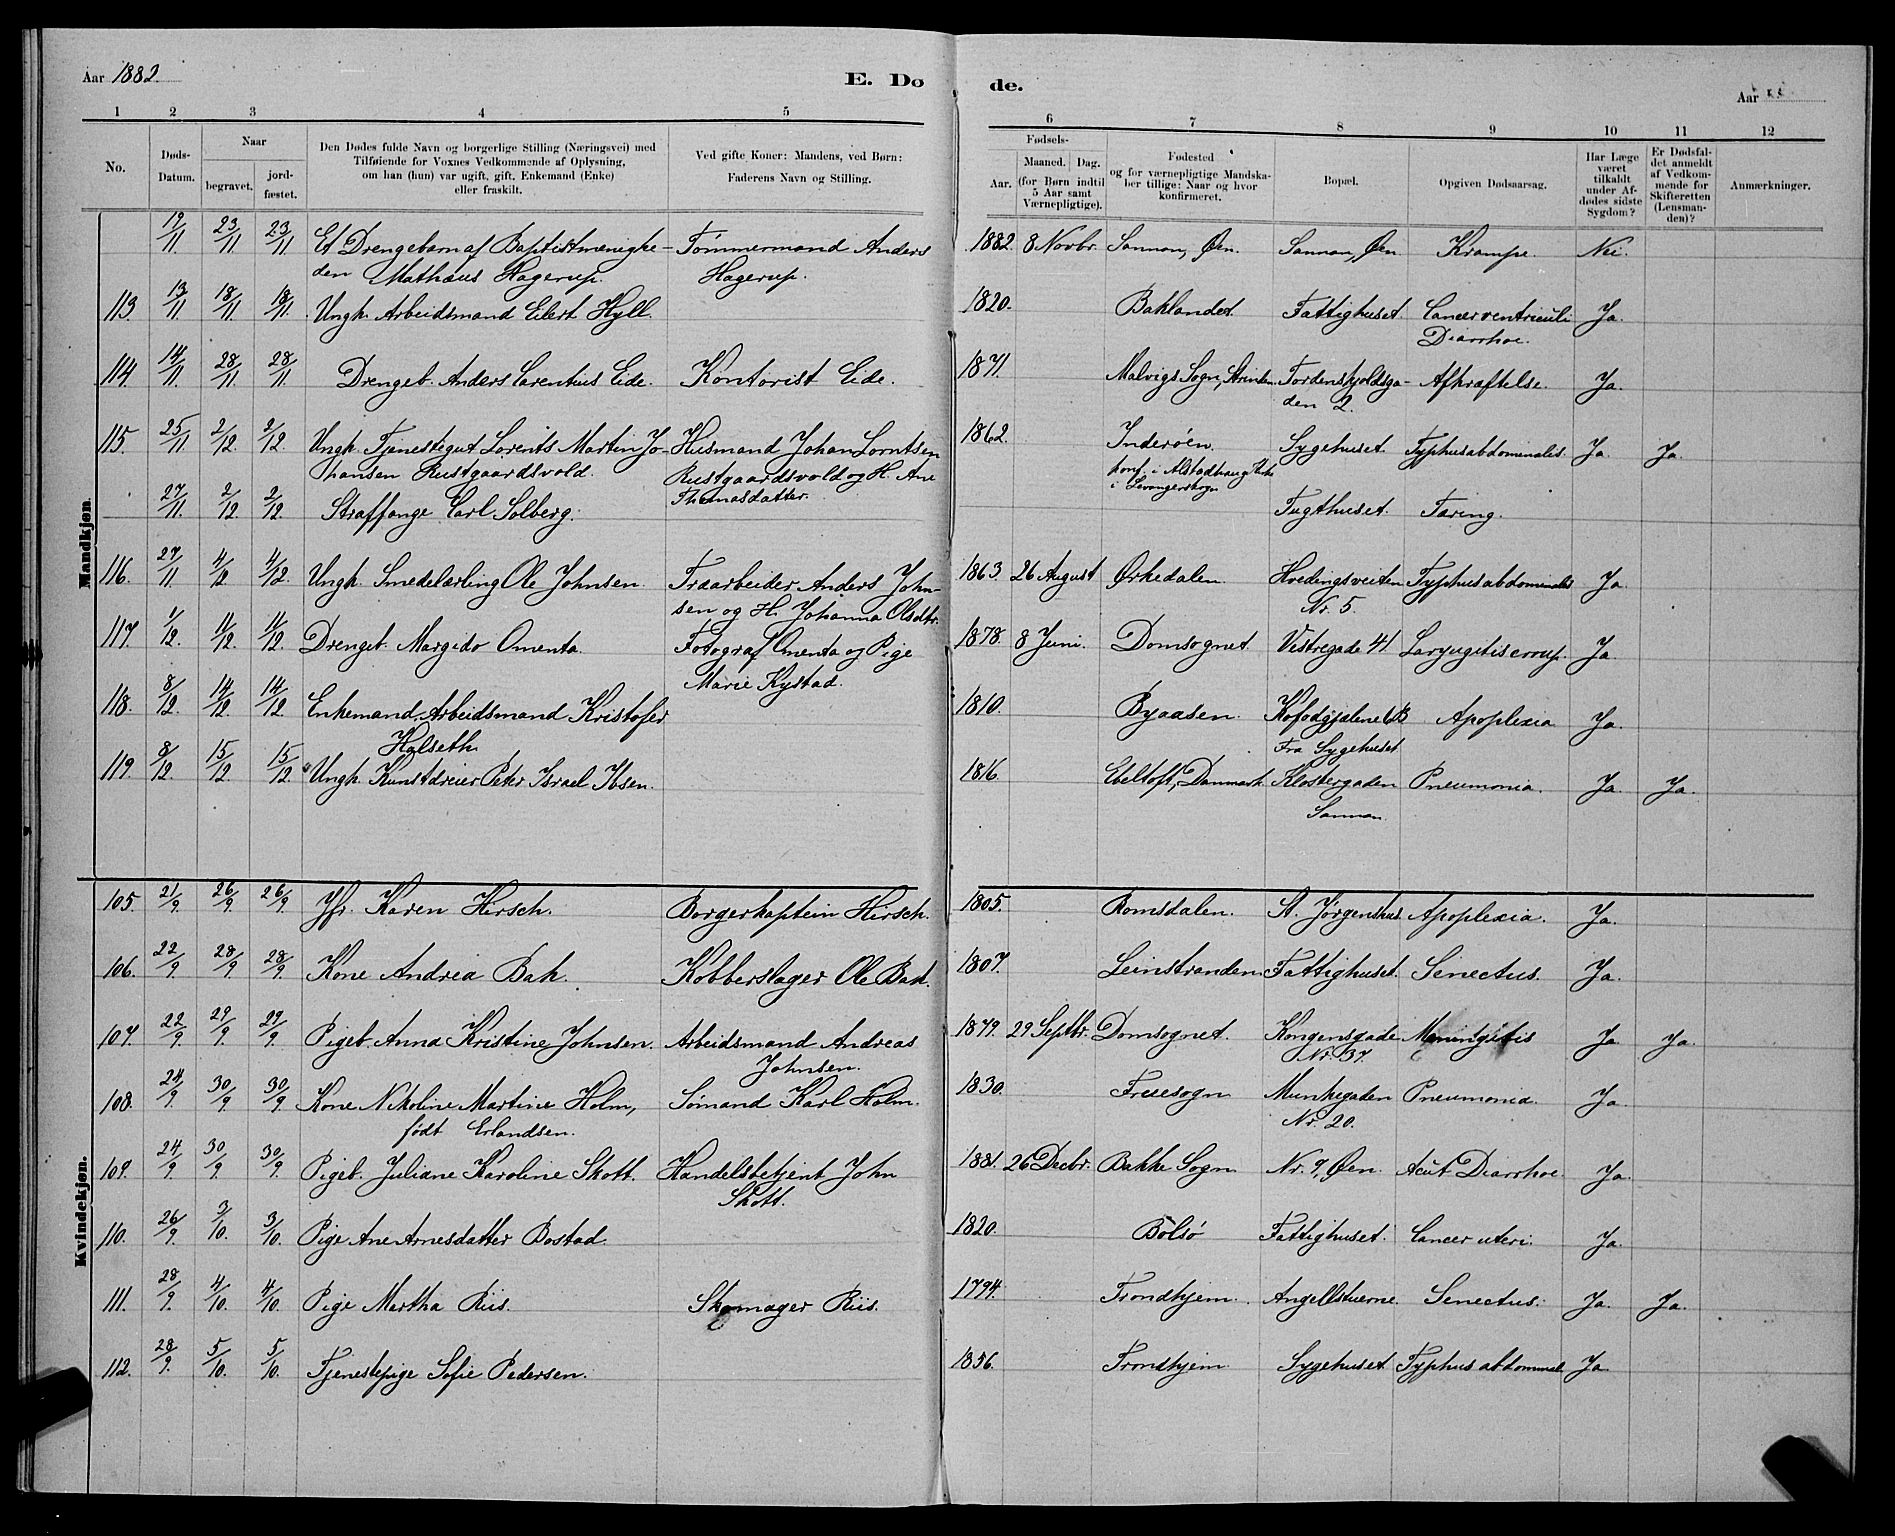 Aar 1882.
E. Dø
de.
Aar
1 2 3 4 5
6 7 8 9 10 11 12
No. Døds-Datum. Naar begravet. jordfæstet. Den Dødes fulde Navn og borgerlige Stilling (Næringsvei) med Tilføiende for Voxnes Vedkommende af Oplysning, om han (hun) var ugift, gift, Enkemand (Enke) eller fraskilt. Ved gifte Koner: Mandens, ved Børn: Faderens Navn og Stilling.
Fødsels- Aar. Maaned. Dag. (for Børn indtil 5 Aar samt Værnepligtige). Fødested og for værnepligtige Mandskaber tillige: Naar og hvor konfirmeret. Bopæl. Opgiven Dødsaarsag. Har Læge været tilkaldt under Afdødes sidste Sygdom? Er Dødsfaldet anmeldt af Vedkommende for Skifteretten (Lensmanden)? Anmærkninger.
Mandkjøn.
19/11 23/11 23/11 Et Drengebarn af Baptistmenighe- Tømmermand Anders 1882. 8 Novbr. Sannan, Øen. Sannan, Øen Krampe. Nei.
den Mathæus Hagerup. Hagerup.
113. 13/11 18/11 18/11. Ungk. Arbeidsmand Elert Hyll. 1820. Baklandet Fattighuset. Cancer ventriculi Ja.
Diarrhoe.
114. 14/11 28/11 28/11. Drengeb. Anders Larentius Eide. Kontorist Eide. 1871. Malvigs Sogn, Strinden Tordenskjoldsga- Afkræftelse. Ja.
den 2.
115. 25/11 2/12 2/12. Ungk. Tjenestegut Lorents Martin Jo- Husmand Johan Lorntsen 1862. Inderøen. Sygehuset. Typhus abdominalis. Ja. Ja.
hansen Rustgaardsvold. Rustgaardsvold og H. Ane konf. i Alstadhaug Kirke
Thomasdatter. i Levanger Sogn
27/11. 2/12 2/12. Straffange Carl Solberg. Tugthuset. Tæring.
116. 27/11 4/12 4/12. Ungk. Smedelærling Ole Johnsen. Træarbeider Anders John- 1863. 26 August Ørkedalen. Hvedingsveiten Typhus abdominalis Ja
sen og H. Johanna Olsdtr. Nr. 5.
117. 1/12. 11/12. 11/12. Drengeb. Margido Omenta. Fotograf Omenta og Pige 1878. 8 Juni. Domsognet Vestregade 41 Laryngitis croup. Ja.
Marie Rystad.
118. 8/12. 14/12. 14/12 Enkemand, Arbeidsmand Kristofer 1810. Byaasen. Ja.
Halseth. Apoplexia
Fra Sygehuset
119. 8/12 15/12 15/12 Ungk. Kunstdreier Peter Israel Ibsen. 1816. Ebeltoft, Danmark Klostergaden Pneumonia. Ja. Ja.
Sannan.
Kvindekjøn.
105. 21/9. 26/9. 26/9. Jfr. Karen Hirsch. Borgerkaptein Hirsch. 1805. Romsdalen. St. Jørgenshus Apoplexia. Ja.
106. 22/9 28/9 28/9 Kone Andrea Bak. Kobberslager Ole Bak. 1807. Leinstranden Fattighuset. Senectus. Ja.
107. 22/9 29/9 29/9 Pigeb. Anna Kristine Johnsen. Arbeidsmand Andreas 1879. 29 Septbr. Domsognet. Kongensgade Meningitis Ja Ja.
Johnsen. Nr. 37.
108. 24/9. 30/9 30/9 Kone Nikoline Martine Holm, Sømand Karl Holm. 1830. Freiesogn Munkegaden Pneumonia. Ja.
født Erlandsen. Nr. 20.
109. 24/9. 30/9. 30/9. Pigeb. Juliane Karoline Skott. Handelsbetjent John 1881. 26 Decbr. Bakke Sogn Nr. 9, Øen. Acut Diarrhoe. Ja.
Skott.
110. 26/9. 3/10. 3/10. Pige Ane Arnesdatter Bostad 1820. Bolsø Fattighuset. Cancer uteri. Ja.
111. 28/9. 4/10. 4/10. Pige Martha Riis. Skomager Riis. 1794. Trondhjem. Angellstuerne Senectus. Ja. Ja.
112. 28/9. 5/10. 5/10. Tjenestepige Sofie Pedersen. 1856. Trondhjem Sygehuset Typhus abdominal Ja.